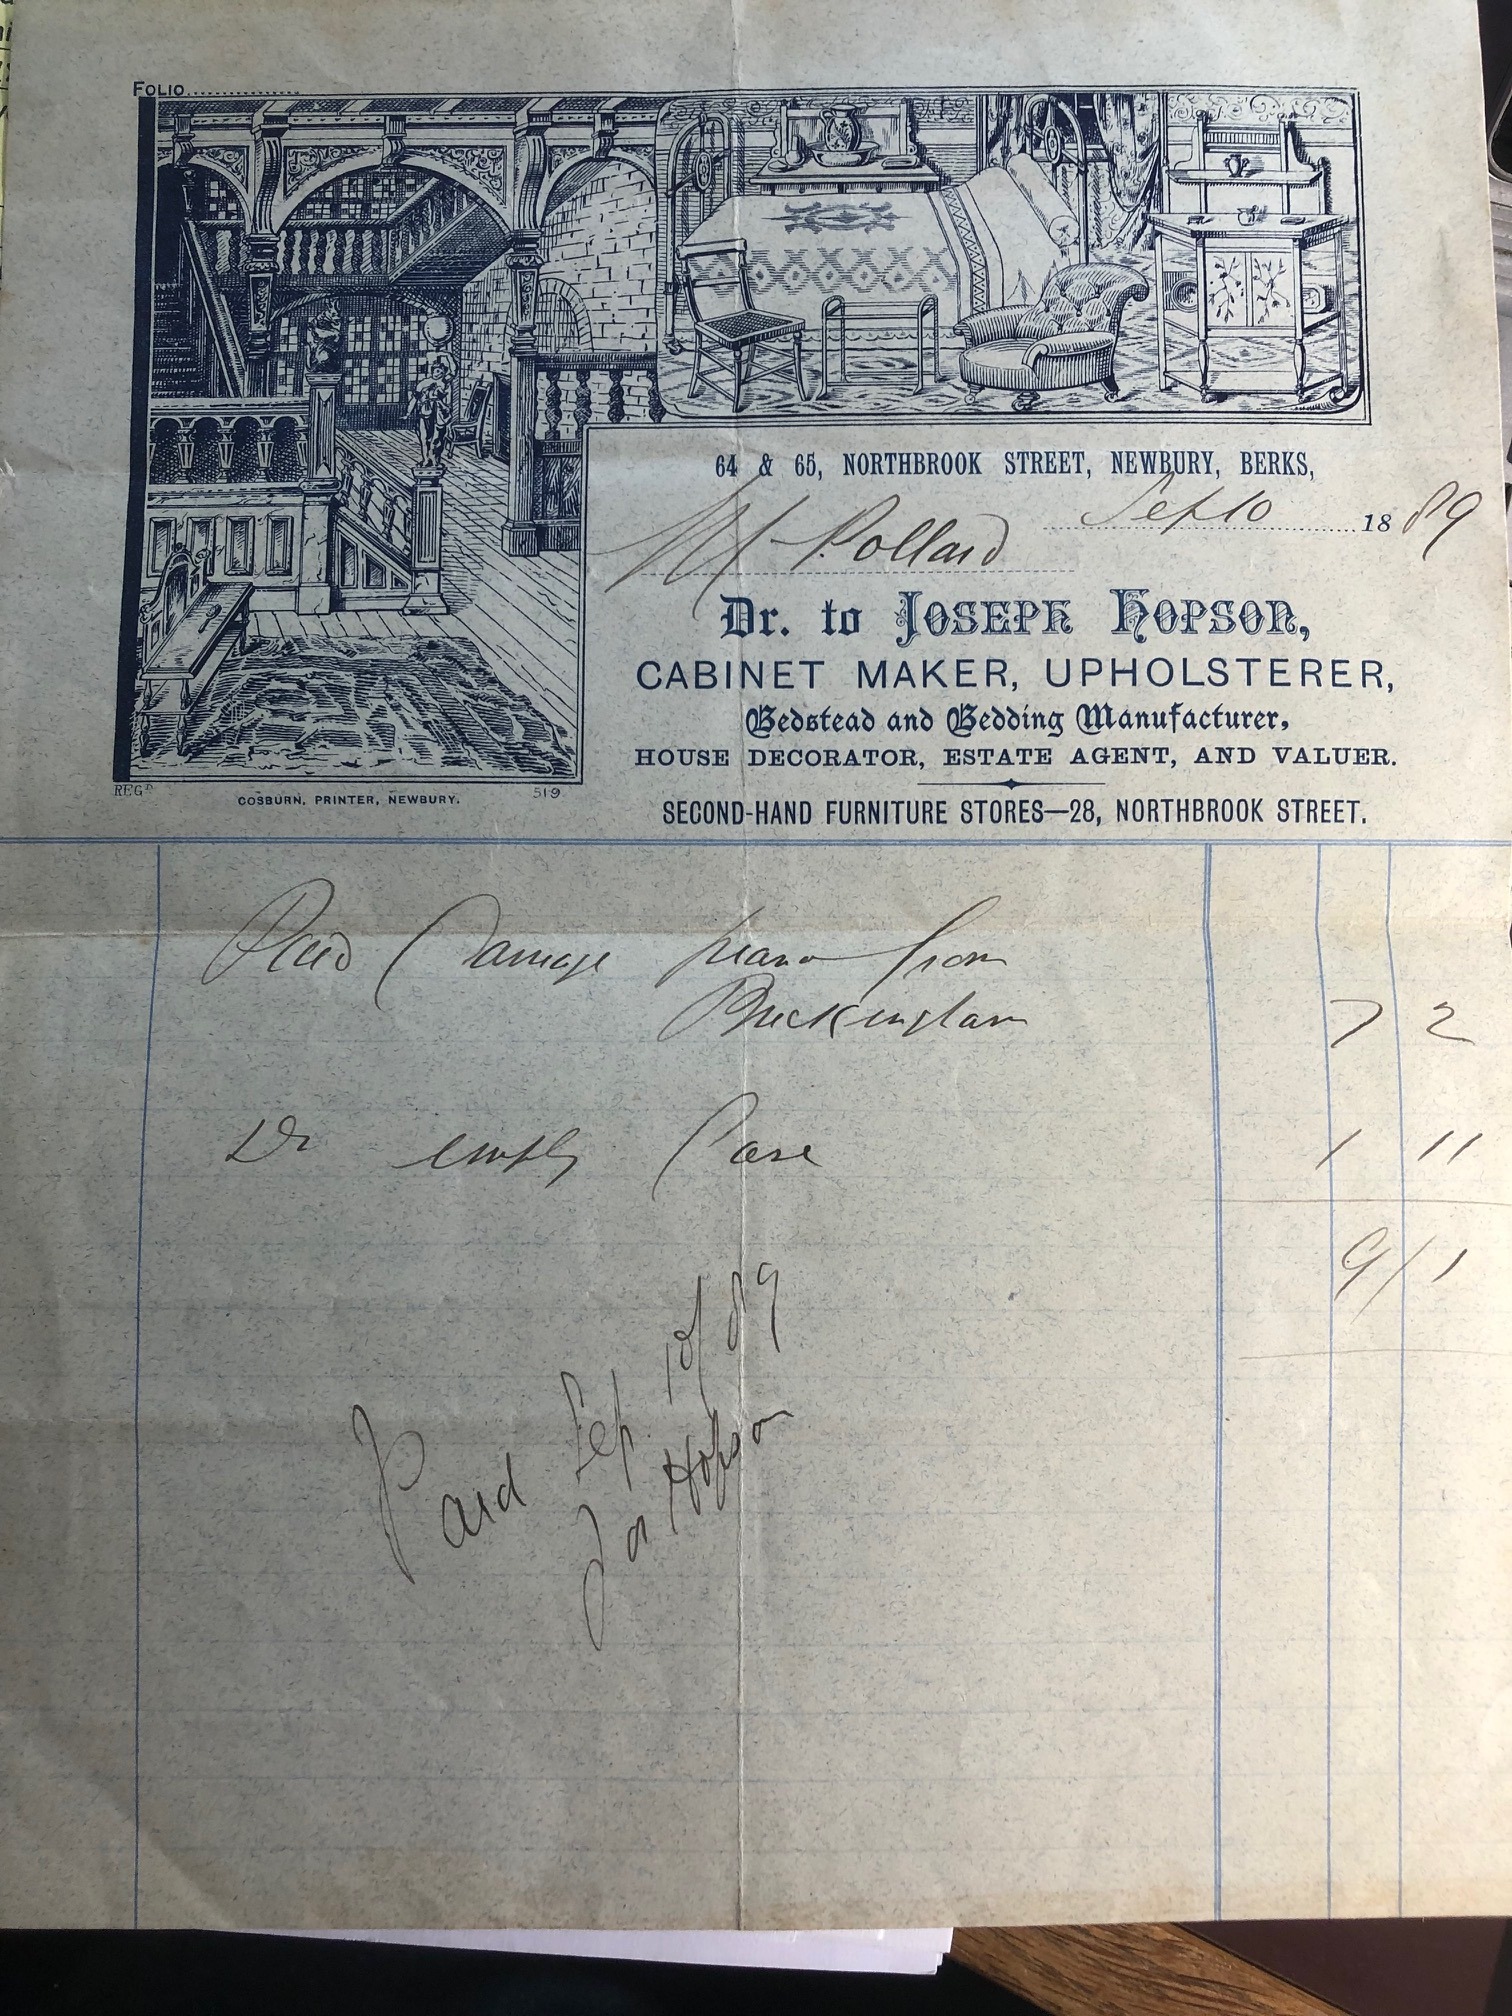 FOLIO
64 & 65, NORTHBROOK STREET, NEWBURY, BERKS,
Sep 10 1889
Mr Pollard
Dr. to JOSEPH HOPSON,
CABINET MAKER, UPHOLSTERER,
Bedstead and Bedding Manufacturer,
HOUSE DECORATOR, ESTATE AGENT, AND VALUER.
SECOND-HAND FURNITURE STORES—28, NORTHBROOK STREET.
REGD
COSBURN, PRINTER, NEWBURY.
519
Paid Carriage piano from
Buckingham 7 2
Do empty Case 1 11
9/1
Paid Sep 10/89
Jos Hopson